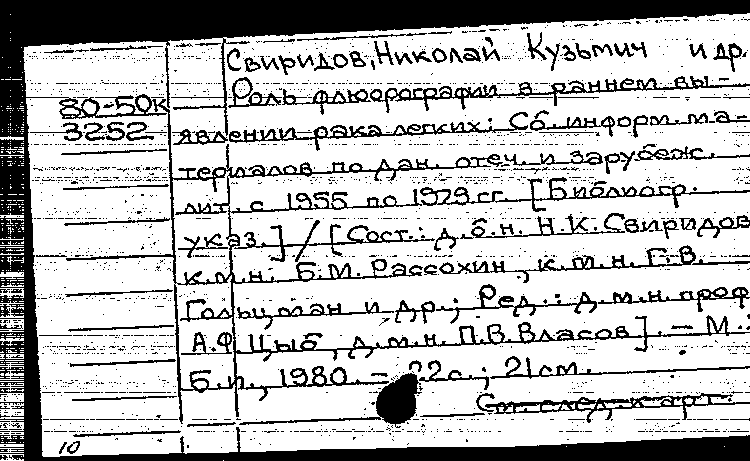 Свиридов, Николай Кузьмич и др.
80-50к
3252
Роль флюорографии в раннем вы-
явлении рака легких: Сб. информ. ма-
териалов по дан. отеч. и зарубеж.
лит. с 1955 по 1979 гг. [Библиогр.
указ.] / [Сост.: д.б.н. Н.К. Свиридов
к.м.н. Б.М. Рассохин, к.м.н. Г.В.
Гольцман и др.; Ред.: д.м.н. проф
А.Ф. Цыб, д.м.н. П.В. Власов]. – М.:
Б.и., 1980. – 22 с.; 21 см.
См. след. карт.
10